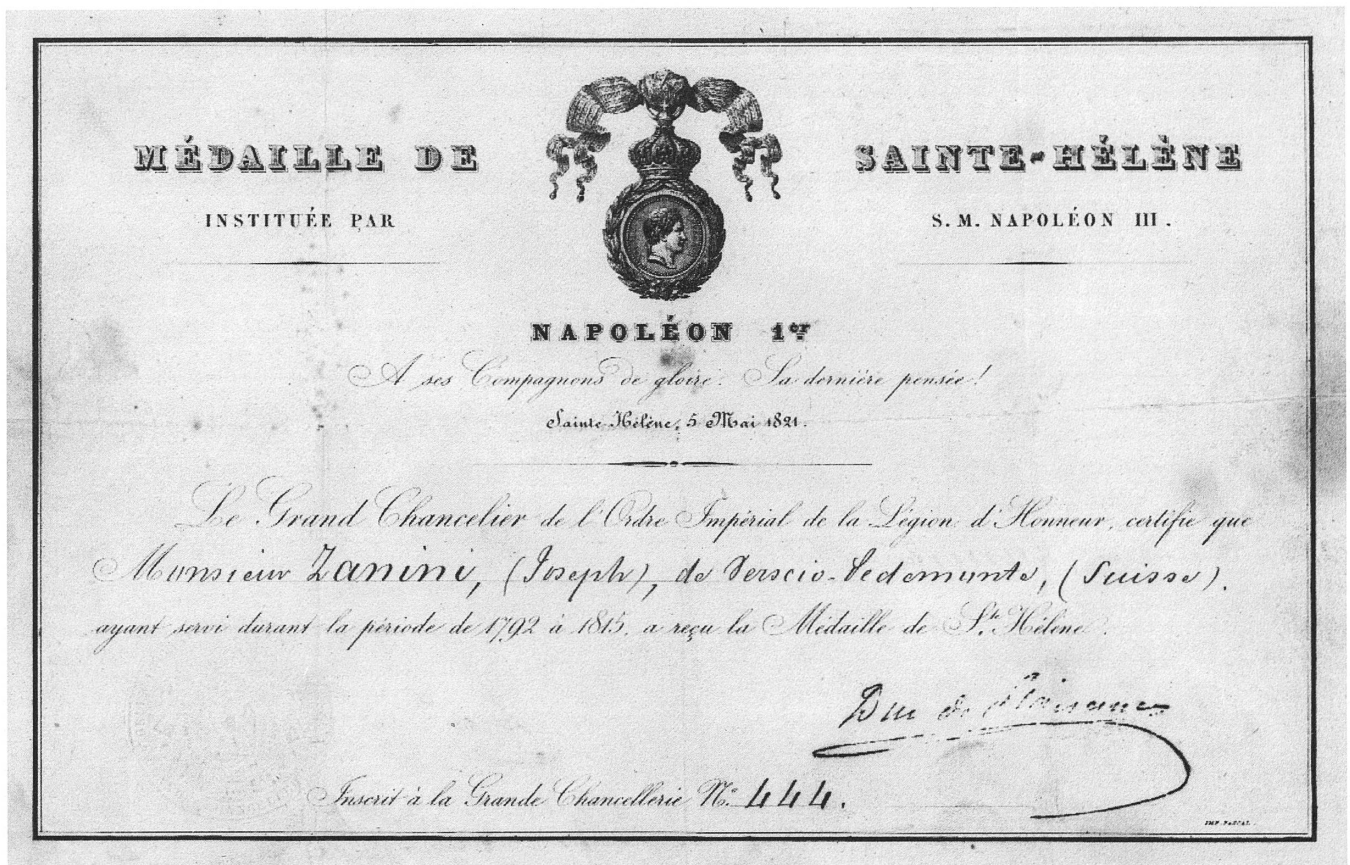 MÉDAILLE DE SAINTE-HÉLÈNE
INSTITUÉE PAR S. M. NAPOLÉON III.
NAPOLÉON 1er
A ses Compagnons de gloire. Sa dernière pensée!
Sainte Hélène, 5 Mai 1821.
Le Grand Chancelier de l'Ordre Impérial de la Légion d'Honneur, certifie que
Monsieur Zanini, (Joseph), de Verscio-Pedemonte, (Suisse).
ayant servi durant la période de 1792 à 1815, a reçu la Médaille de Ste Hélène.
Duc de Plaisance
Inscrit à la Grande Chancellerie No. 444.
IMP. PASCAL.